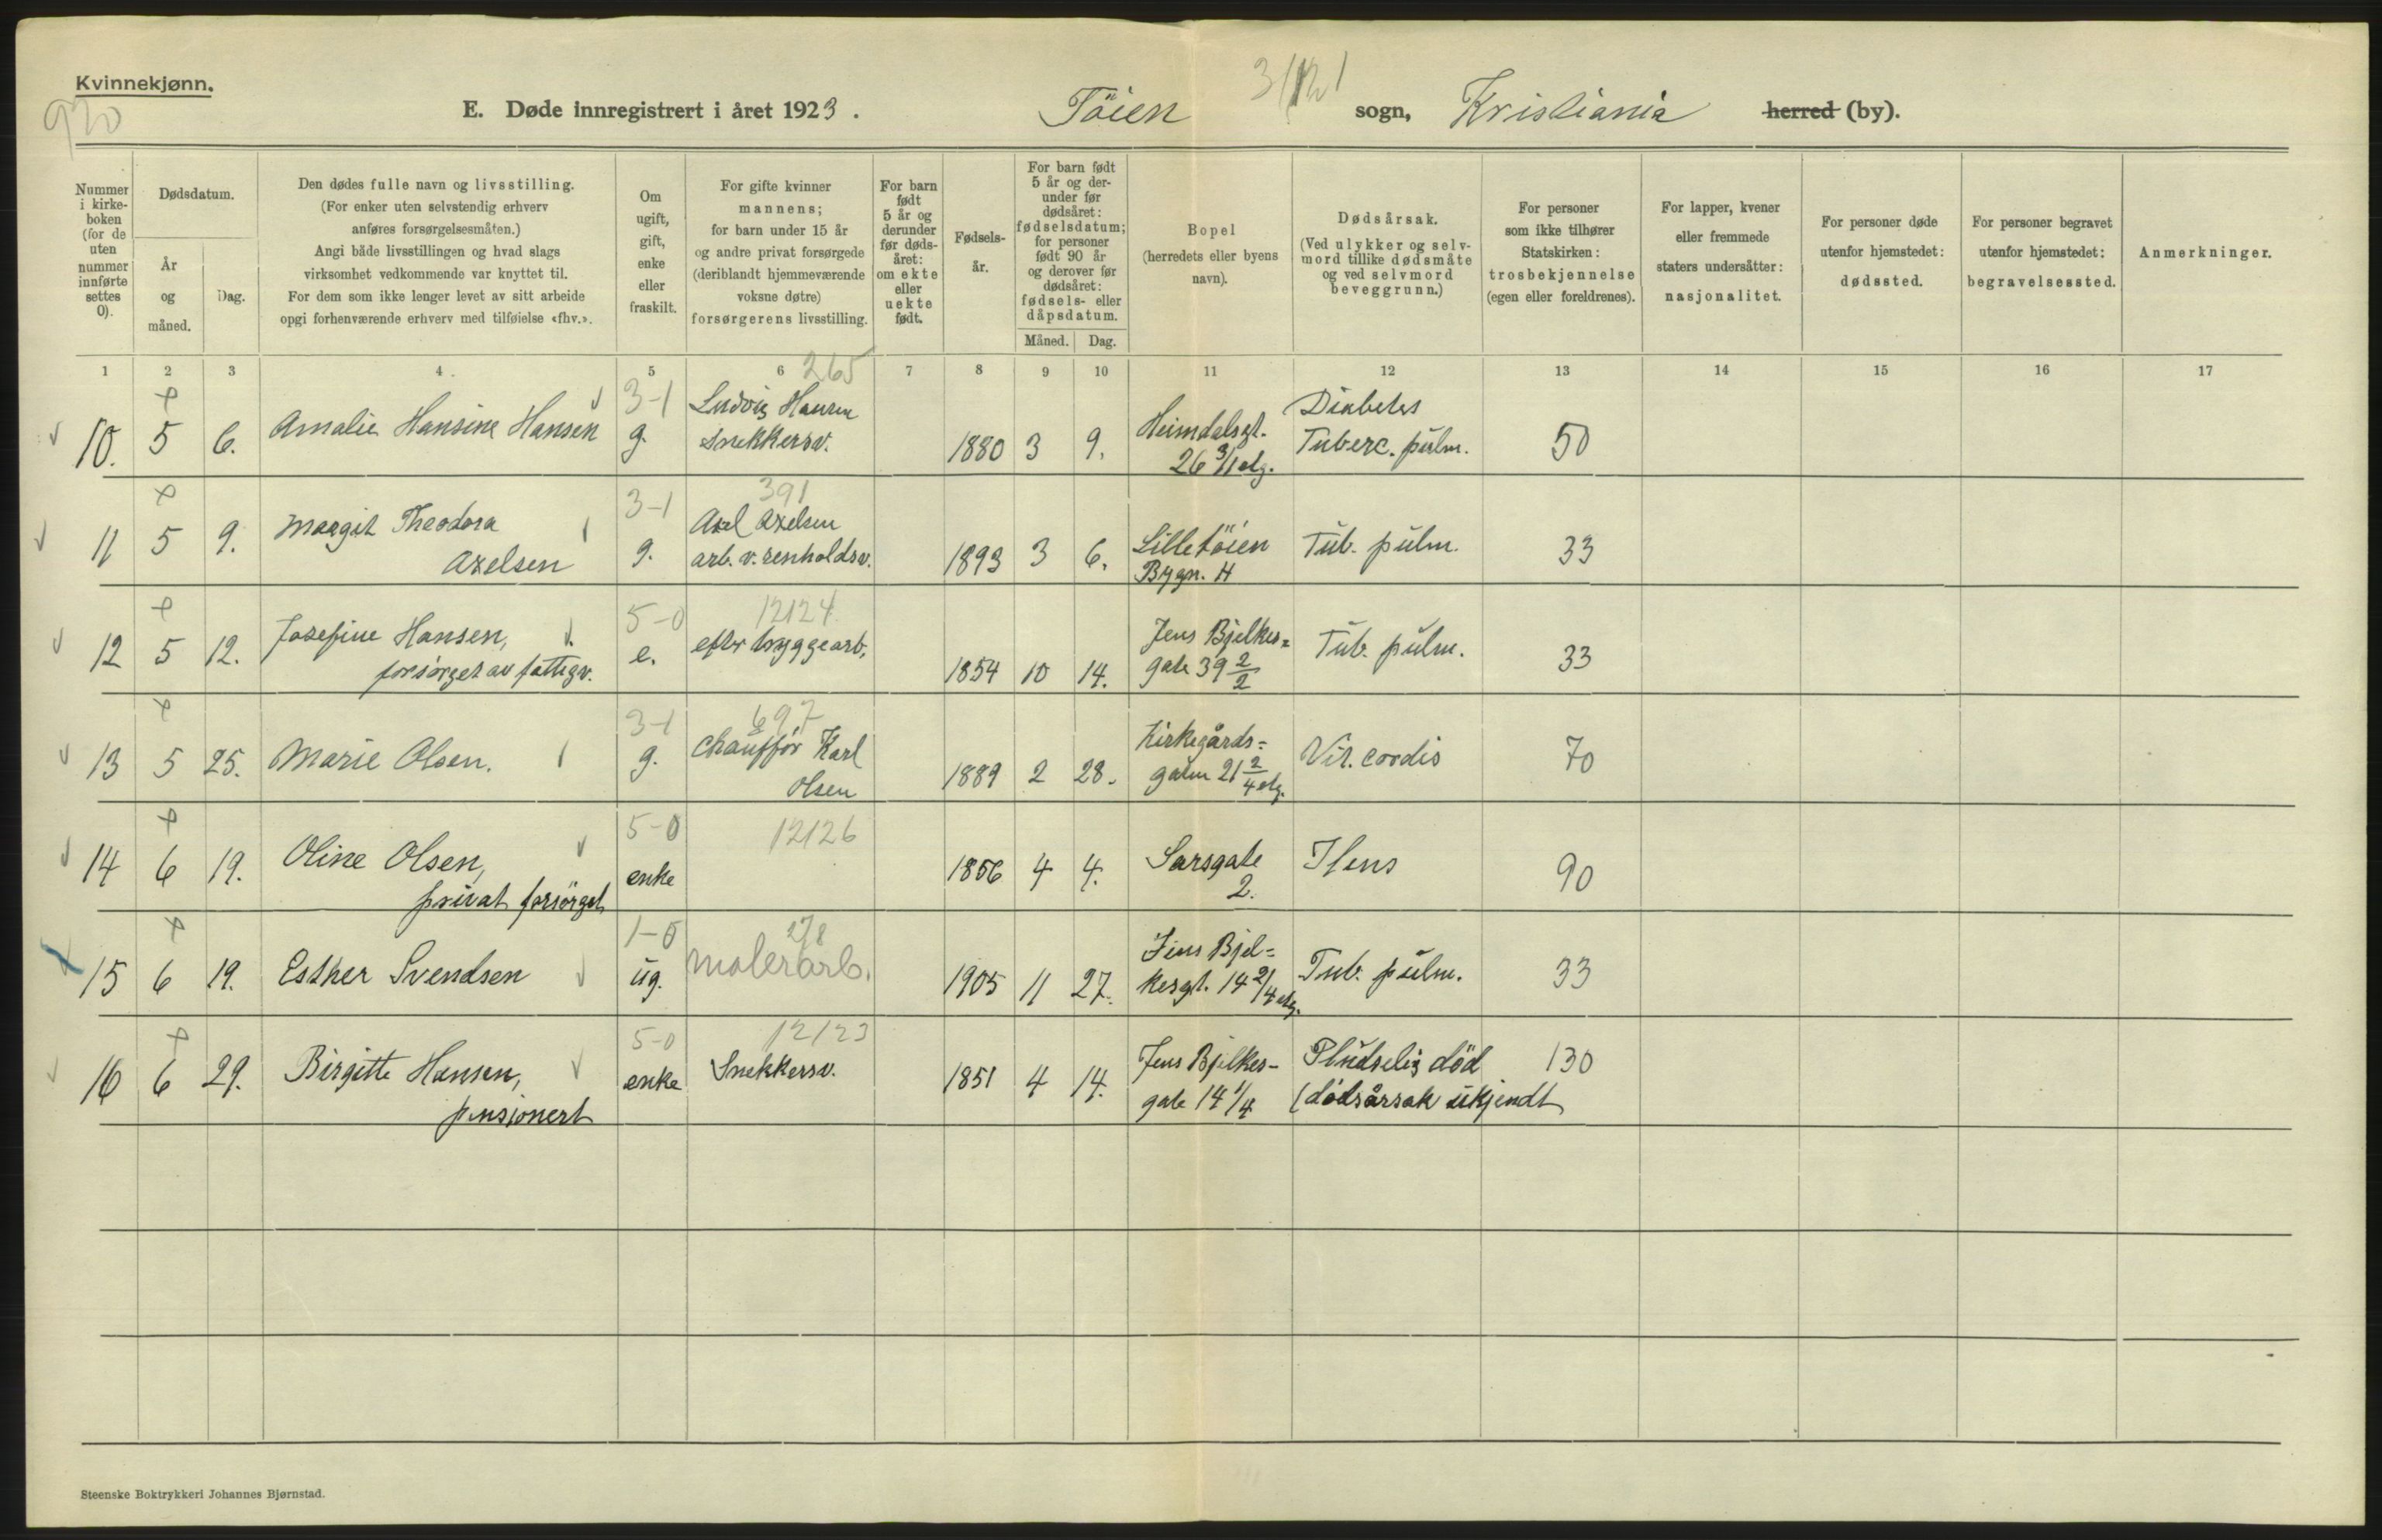 Kvinnekjønn.
920
E. Døde innregistrert i året 1923.
Töien sogn, Kristiania herred (by).
Nummer i kirke-boken (for de uten nummer innførte settes 0).
Dødsdatum.
År og måned.
Dag.
Den dødes fulle navn og livsstilling.
(For enker uten selvstendig erhverv
anføres forsørgelsesmåten.)
Angi både livsstillingen og hvad slags
virksomhet vedkommende var knyttet til.
For dem som ikke lenger levet av sitt arbeide
opgi forhenværende erhverv med tilføielse «fhv.».
Om ugift, gift, enke eller fraskilt.
For gifte kvinner
mannens;
for barn under 15 år
og andre privat forsørgede
(deriblandt hjemmeværende
voksne døtre)
forsørgerens livsstilling.
For barn født 5 år og derunder før døds-året: om ekte eller uekte født.
Fødsels-år.
For barn født 5 år og der-under før dødsåret: fødselsdatum; for personer født 90 år og derover før dødsåret: fødsels- eller dåpsdatum.
Måned. Dag.
Bopel
(herredets eller byens
navn).
Dødsårsak.
(Ved ulykker og selv-
mord tillike dødsmåte
og ved selvmord
beveggrunn.)
For personer
som ikke tilhører
Statskirken:
trosbekjennelse
(egen eller foreldrenes).
For lapper, kvener
eller fremmede
staters undersåtter:
nasjonalitet.
For personer døde
utenfor hjemstedet:
dødssted.
For personer begravet
utenfor hjemstedet:
begravelsessted.
Anmerkninger.
1 2 3 4 5 6 7 8 9 10 11 12 13 14 15 16 17
265
3-1 Ludvig Hansen Diabetes
10. 5 6. Amalie Hansine Hansen g. snekkersv. 1880 3 9. Heimdalsgt. Tuberc. pulm. 50
26 3/1 etg.
3-1 391
Margit Theodora Axel Axelsen
11 5 9. Axelsen g. arb. v. renholdsv. 1893 3 6. Lilletöien Tub. pulm. 33
Bygn. H
5-0 12124
12 5 12. Josefine Hansen, e. efter bryggearb. Jens Bjelkes= Tub. pulm. 33
forsörget av fattigv. 1854 10 14. gate 39 2/2
3-1 697
13 5 25. Marie Olsen. g. Chauffør Karl Kirkegårds= Vit. cordis 70
Olsen 1889 2 28. gaten 21 2/4 etg.
5-0 12126
14 6 19. Oline Olsen, enke 1856 4 4. Sarsgate Ilens 90
privat forsörget 2.
1-0 278
15 6 19. Esther Svendsen ug. malerarb. 1905 11 27. Jens Bjel=
kesgt. 14 2/4 etg. Tub. pulm. 33
5-0 12123
16 6 29. Birgitte Hansen, enke Snekkersv. 1851 4 14. Jens Bjelkes- Pludselig död 130
pensjonert gate 14 1/4 (dödsårsak ukjendt
Steenske Boktrykkeri Johannes Bjørnstad.